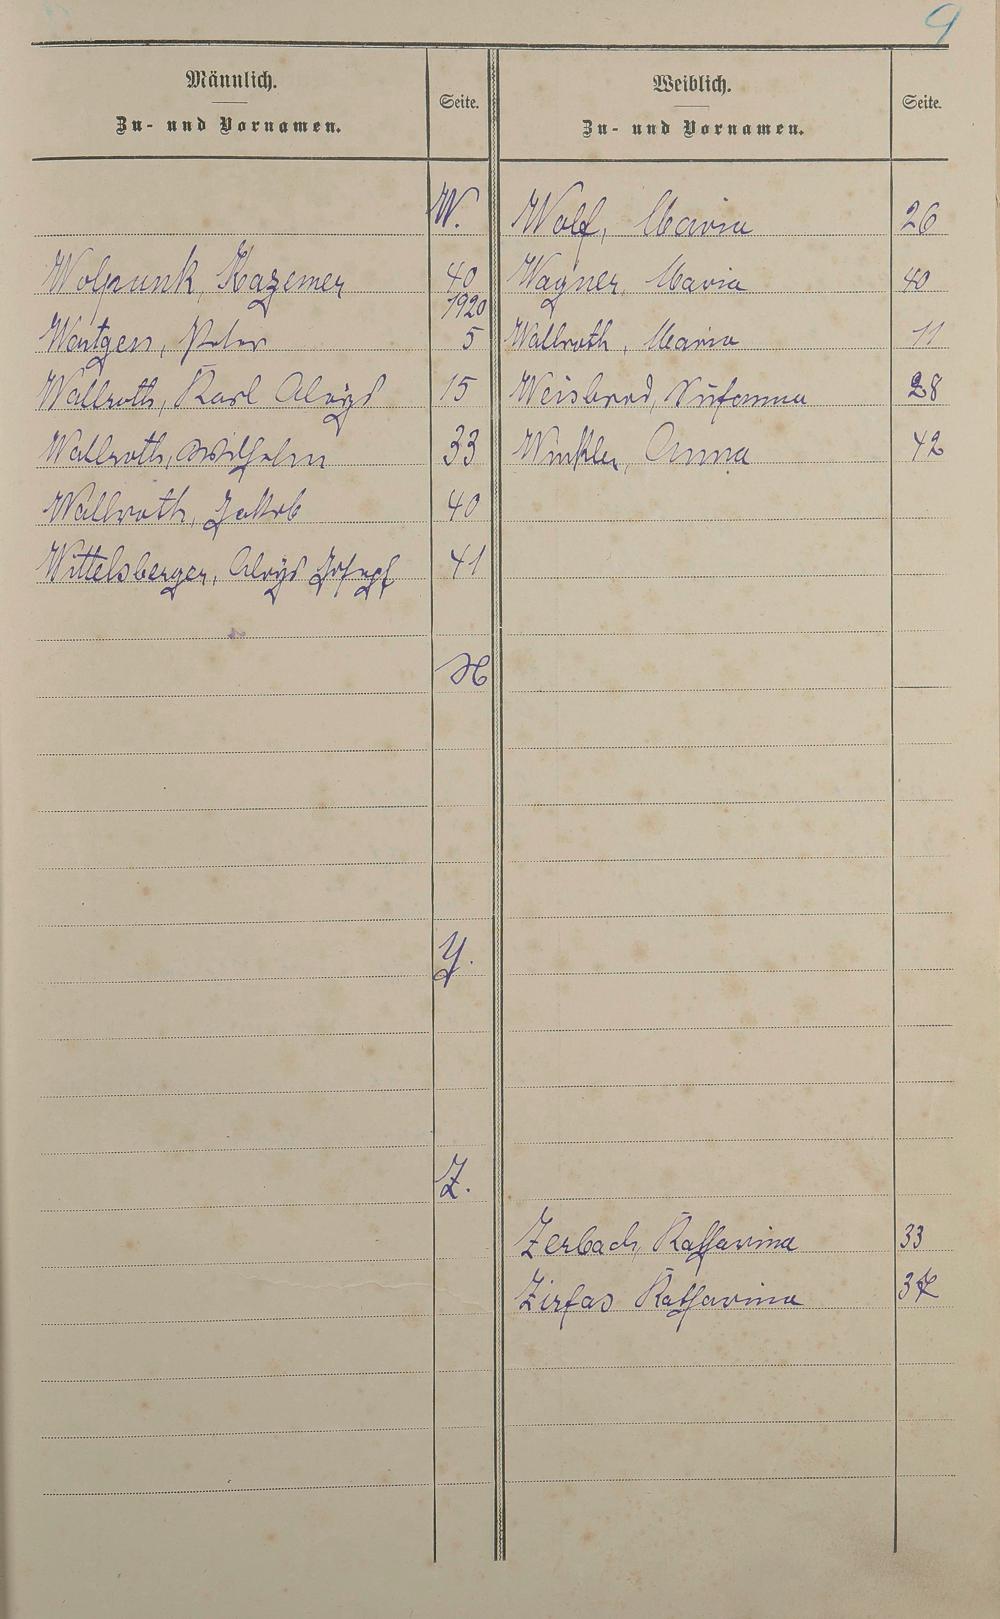 9
Männlich.
Zu- und Vornamen.
Seite.
Weiblich.
Zu- und Vornamen.
Seite.
W.
Wolf, Maria 26
Wolpunk, Kazemer 40
Wagner, Maria 40
1920
Wentgen, Peter 5
Wallroth, Maria 11
Wallroth, Karl Aloys 15
Weisbrod, Susanna 28
Wallroth, Wilhelm 33
Winkler, Anna 42
Wallroth, Jakob 40
Wittelsberger, Aloys Josepf 41
X
Y.
Z.
Zerbach, Katharina 33
Zirfas Katharina